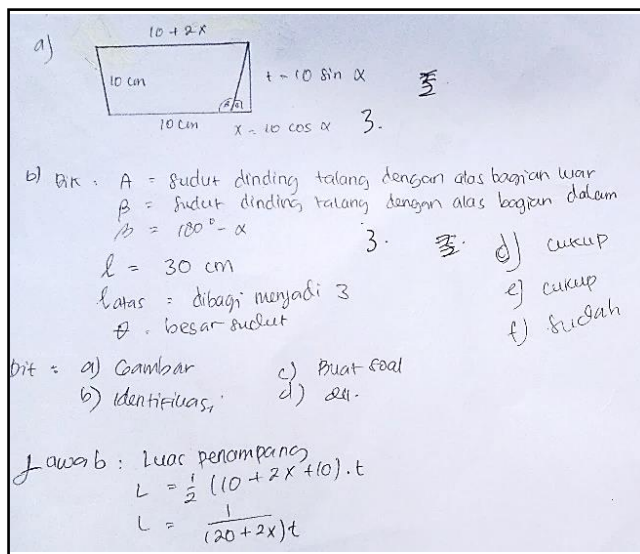 a)
10 + 2x
10 cm
t = 10 sin α
10 cm
x = 10 cos α
3.
b) Dik : A = sudut dinding talang dengan alas bagian luar
β = sudut dinding talang dengan alas bagian dalam
β = 180° - α
3.
l = 30 cm
l atas = dibagi menjadi 3
θ = besar sudut
d) cukup
e) cukup
f) sudah
Dit : a) Gambar
b) identifikasi,
c) Buat soal
d)
Jawab : Luas penampang
L = 1/2 (10 + 2x + 10) . t
L = 1/(20 + 2x) t